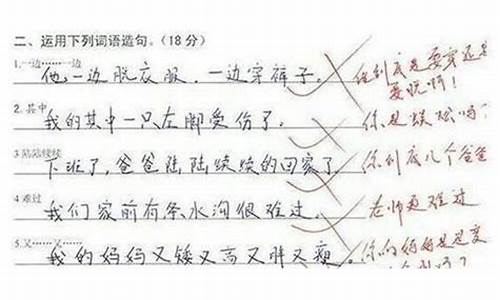 二、运用下列词语造句。(18 分)
1.一边……一边
他一边脱衣服,一边穿裤子。
你到底是要穿还是
要脱啊!
2.其中
我的其中一只左脚受伤了。
你是蜈蚣吗?
3.陆陆续续
下班了,爸爸陆陆续续的回家了。
你到底几个爸爸
4.难过
我们家前有条水沟很难过。
老师更难过
5.又……又……
我的妈妈又矮又高又胖又瘦。
你的妈妈是是变